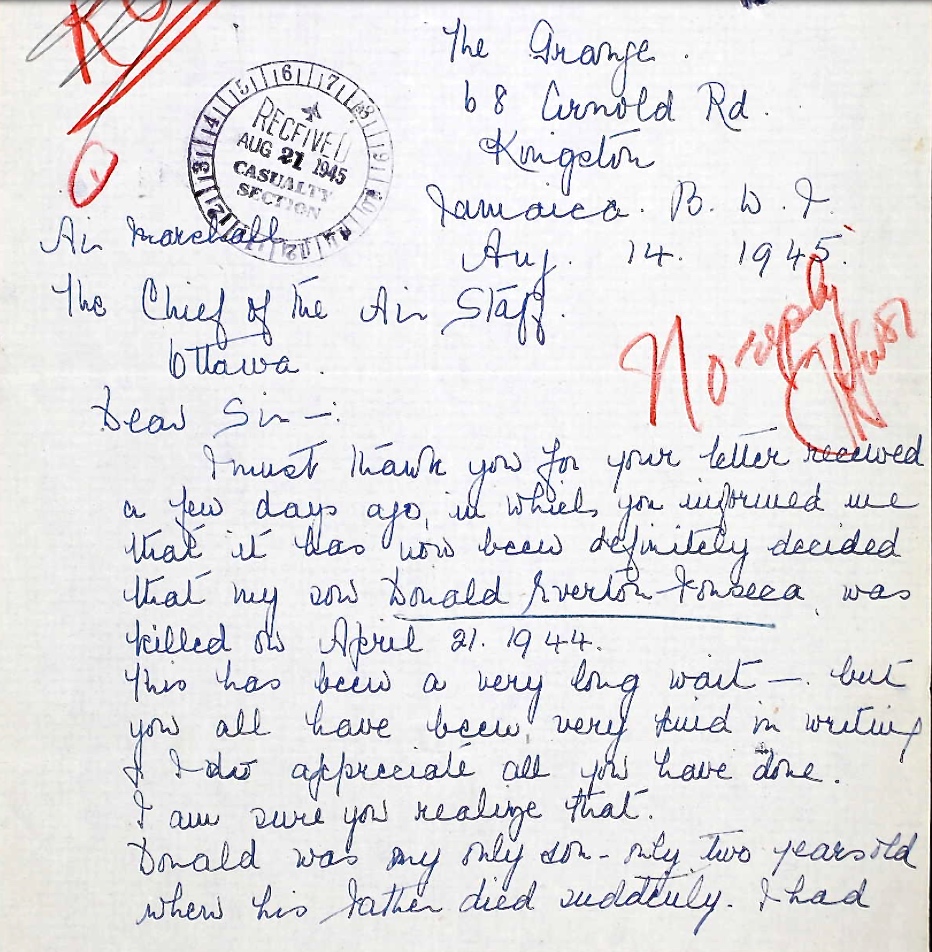 The Grange.
68 Arnold Rd.
Kingston
Jamaica. B. W. I.
Aug. 14. 1945.
RECEIVED
AUG 21 1945
CASUALTY
SECTION
Air Marshall
The Chief of the Air Staff.
Ottawa.
No reply
Dear Sir —:
I must thank you for your letter received
a few days ago, in which you informed me
that it has now been definitely decided
that my son Donald Everton Fonseca was
killed on April 21. 1944.
This has been a very long wait —. but
you all have been very kind in writing
& I do appreciate all you have done.
I am sure you realize that.
Donald was my only son - only two years old
when his father died suddenly. I had